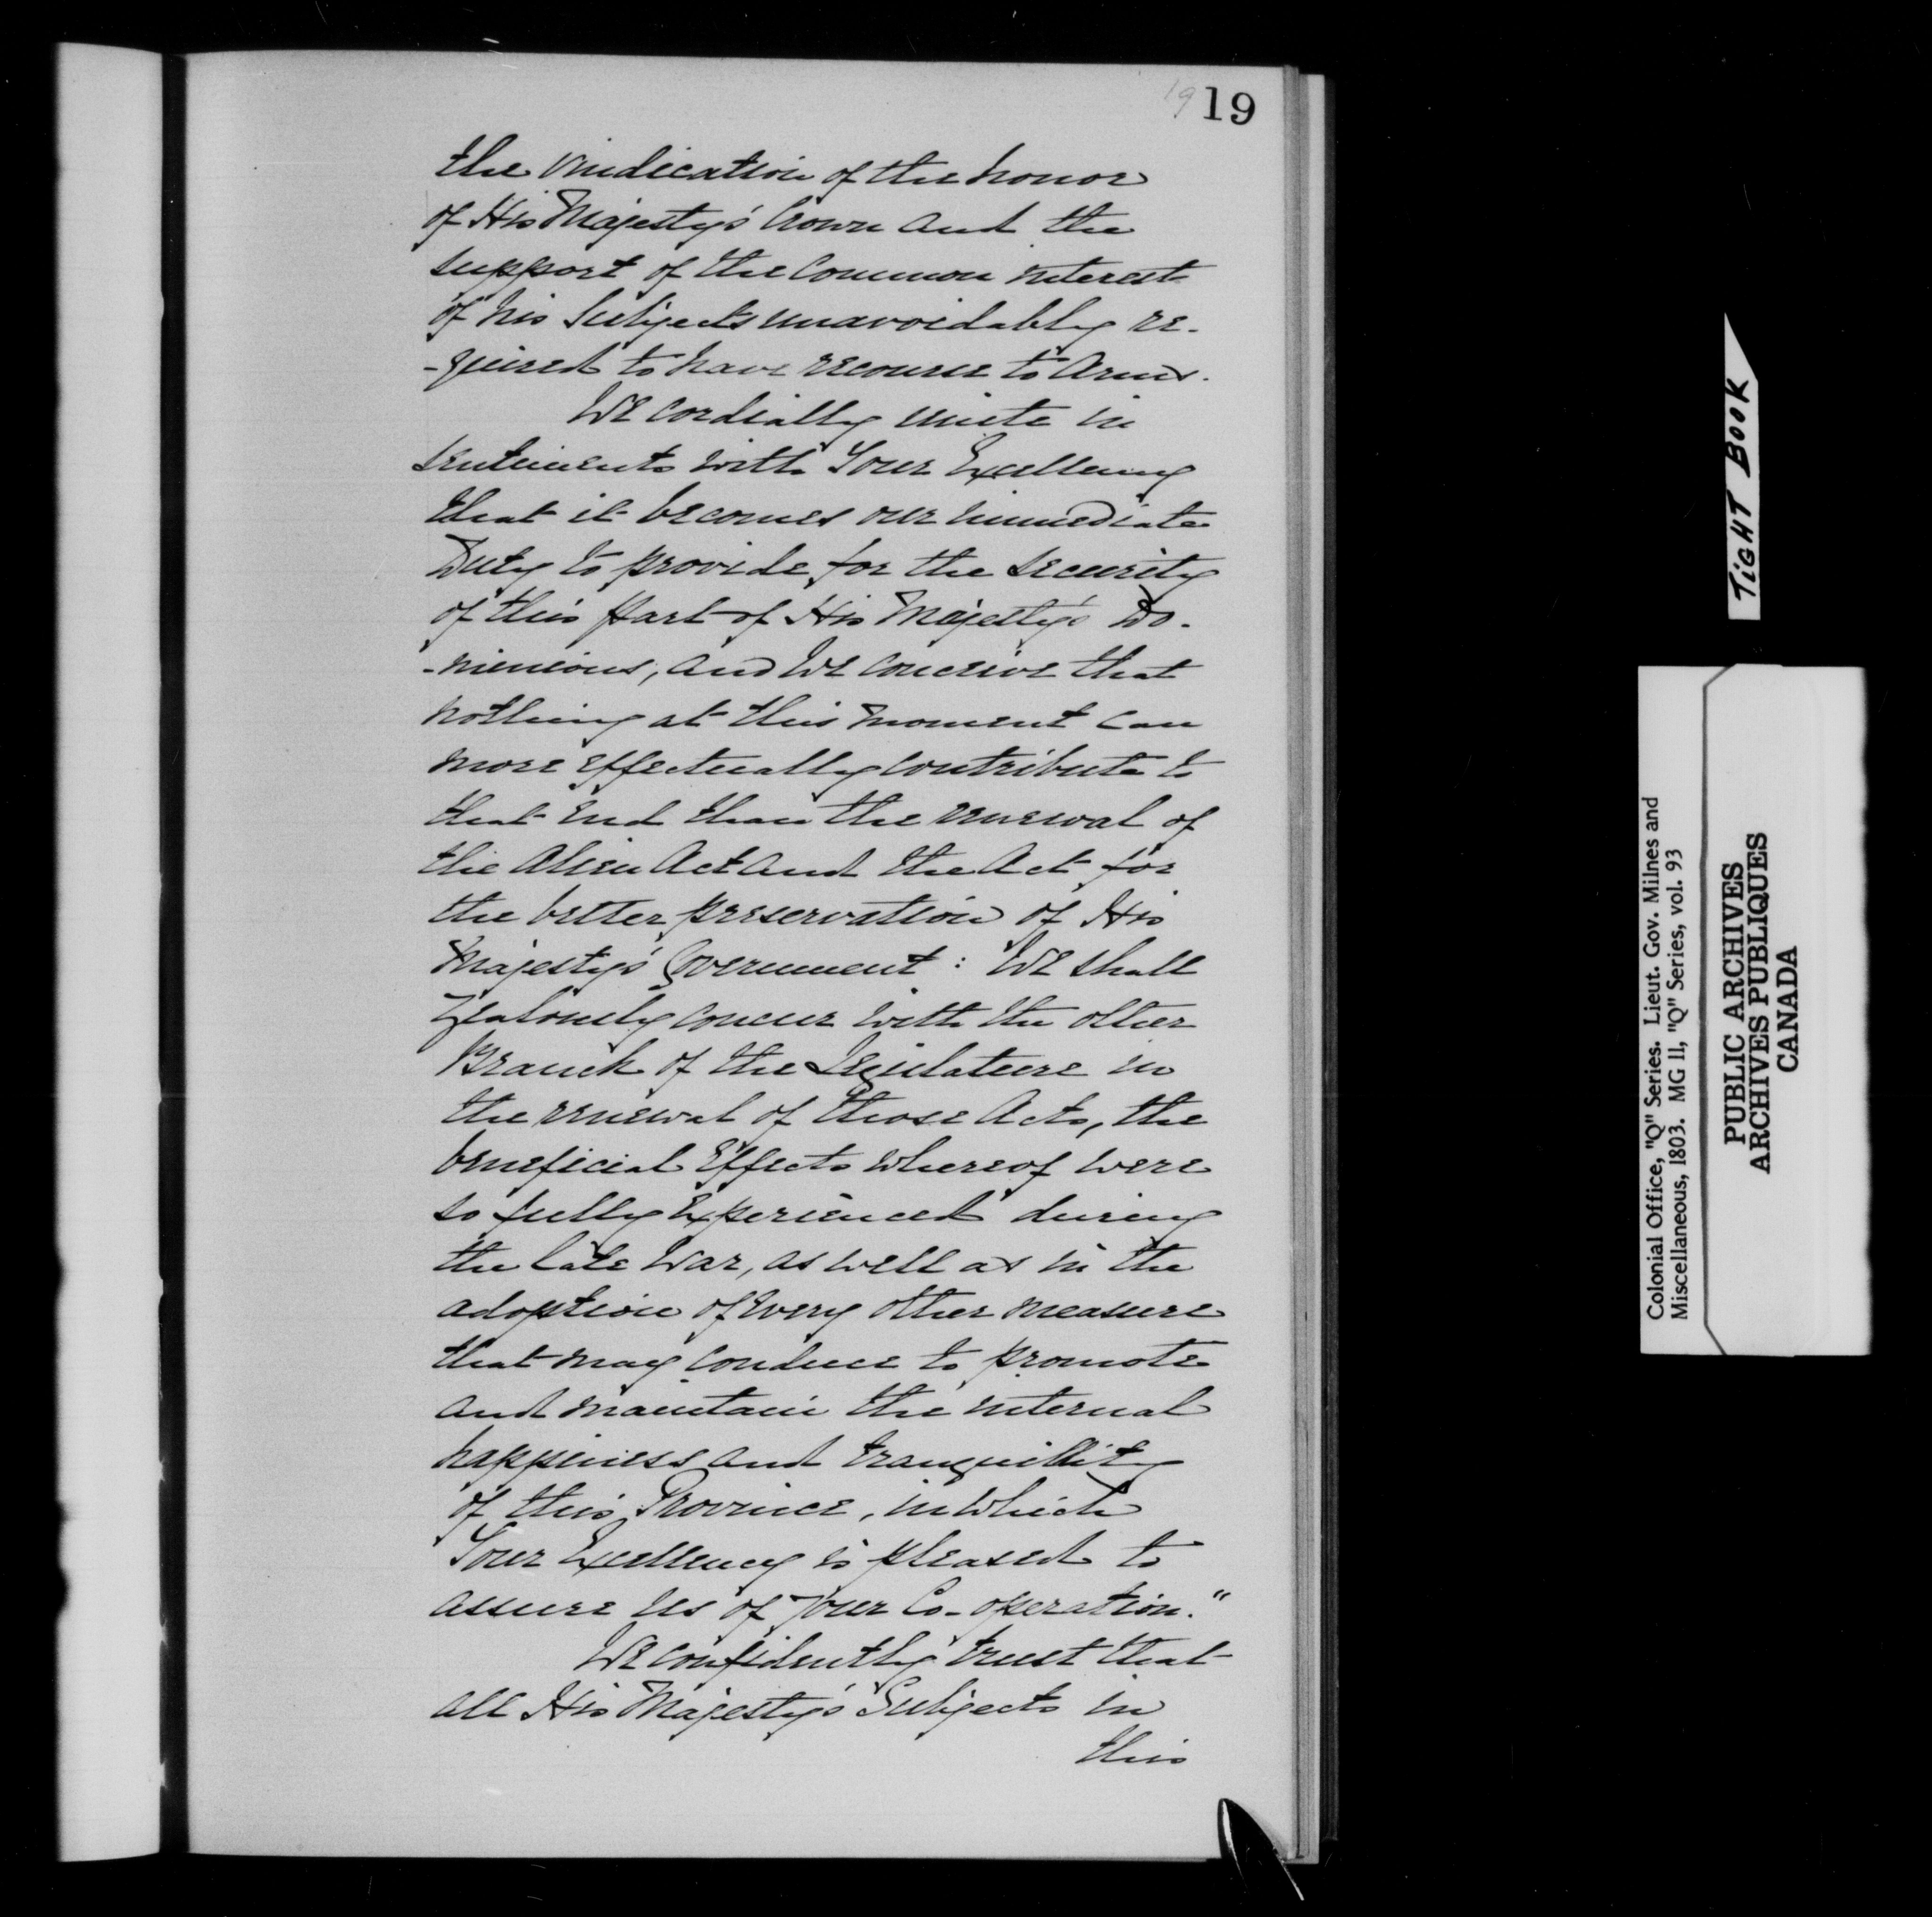 19 19
the vindication of the honor
of His Majesty's Crown and the
support of the Common interest
of his Subjects unavoidably re-
-quired to have recourse to Arms.
We cordially unite in
sentiments with Your Excellency
that it becomes our immediate
Duty to provide for the security
of this part of His Majesty's Do-
-minions, and We conceive that
nothing at this moment can
more effectually contribute to
that end than the renewal of
the Alien Act and the Act for
the better preservation of His
Majesty's Government : We shall
Zealously concur with the other
Branch of the Legislature in
the renewal of those Acts, the
beneficial Effects whereof were
so fully Experienced during
the late War, as well as in the
adoption of Every other measure
that may conduce to promote
and maintain the internal
happiness and tranquillity
of this Province, in which
Your Excellency is pleased to
assure us of your Co-operation."
We confidently trust that
all His Majesty's Subjects in
this
TIGHT BOOK
Colonial Office, "Q" Series. Lieut. Gov. Milnes and
Miscellaneous, 1803. MG 11, "Q" Series, vol. 93
PUBLIC ARCHIVES
ARCHIVES PUBLIQUES
CANADA